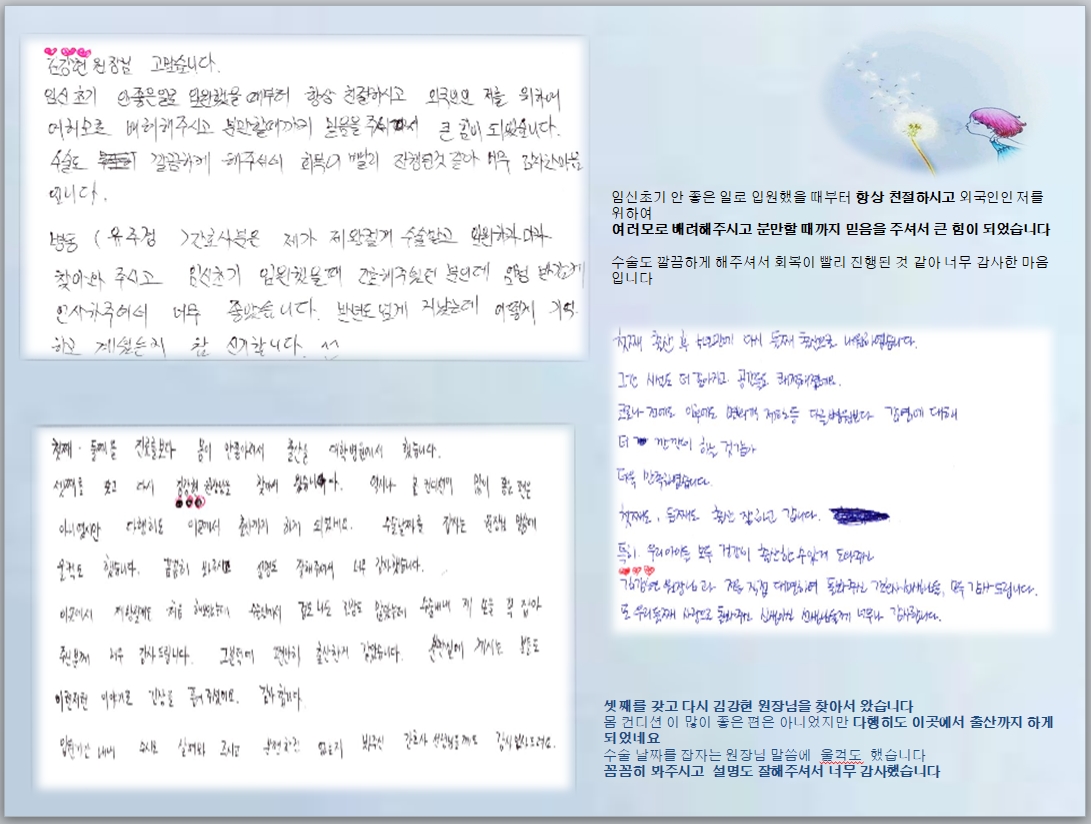 김강현 원장님 고맙습니다.
임신 초기 안좋은일로 입원했을 때부터 항상 친절하시고 외국인인 저를 위하여
여러모로 배려해주시고 분만할때까지 믿음을 주셔서 큰 힘이 되었습니다.
수술도 깔끔하게 해주셔서 회복이 빨리 진행된것 같아 너무 감사한마음
입니다.
병동 (유주정) 간호사분은 제가 제왕절개 수술받고 입원하자마자
찾아와 주시고 임신초기 입원했을때 간호해주셨던 분인데 반갑게
인사해주셔서 너무 좋았습니다. 반년도 넘게 지났는데 어떻게 기억
하고 계셨는지 참 신기합니다.
임신초기 안 좋은 일로 입원했을 때부터 항상 친절하시고 외국인인 저를
위하여
여러모로 배려해주시고 분만할 때까지 믿음을 주셔서 큰 힘이 되었습니다
수술도 깔끔하게 해주셔서 회복이 빨리 진행된 것 같아 너무 감사한 마음
입니다
첫째 출산 후 다시 둘째 출산으로 내원하였습니다.
그간 시설도 더 좋아지고 공간들도 쾌적해졌네요.
코로나 전에도 이후에도 면회객 제한등 다른병원보다 감염에 대해
더 깐깐히 하는 것같아
더욱 만족하였습니다.
첫째도, 둘째도 출산 잘하고 갑니다.
특히, 우리아이들 모두 건강히 출산할 수 있게 도와주신
김강현 원장님과 저를 직접 대면하여 돌봐주신 간호사선생님들, 모두 감사드립니다.
또 우리둘째 사랑으로 돌봐주신 신생아실 선생님들께 너무나 감사합니다.
첫째·둘째를 진료를보다 몸이 안좋아져서 출산은 대학병원에서 했습니다.
셋째를 갖고 다시 김강현 원장님을 찾아서 왔습니다. 역시나 몸 컨디션이 많이 좋은 편은
아니였지만 다행히도 이곳에서 출산까지 하게 되었네요. 수술날짜를 잡자는 원장님 말씀에
울컥도 했습니다. 꼼꼼히 봐주시고 설명도 잘해주셔서 너무 감사했습니다.
이곳에서 제왕절개는 처음 해봤는데 수술방에서 겁도나고 긴장도 많았는데 수술내내 제 손을 꼭 잡아
주신분께 너무 감사드립니다. 그분덕에 편안히 출산하게 같았습니다. 분만실에 계시는 분들도
이런저런 이야기로 긴장을 풀어 주셨어요. 감사합니다.
입원기간 내내 수시로 살펴봐 주시고 불편하진 않은지 봐주신 간호사 선생님들께도 감사했어요.
셋째를 갖고 다시 김강현 원장님을 찾아서 왔습니다
몸 컨디션이 많이 좋은 편은 아니었지만 다행히도 이곳에서 출산까지 하게
되었네요
수술 날짜를 잡자는 원장님 말씀에 울컥도 했습니다
꼼꼼히 봐주시고 설명도 잘해주셔서 너무 감사했습니다